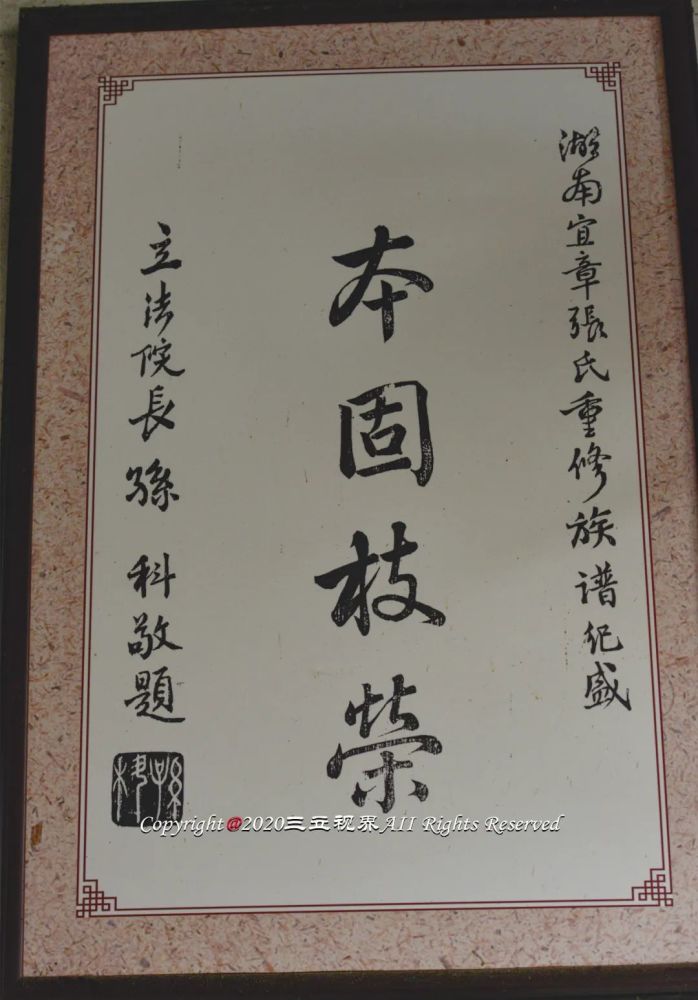 湖南宜章張氏重修族譜纪盛
本固枝榮
立法院長孫科敬題
孫科
Copyright@2020三立视界All Rights Reserved